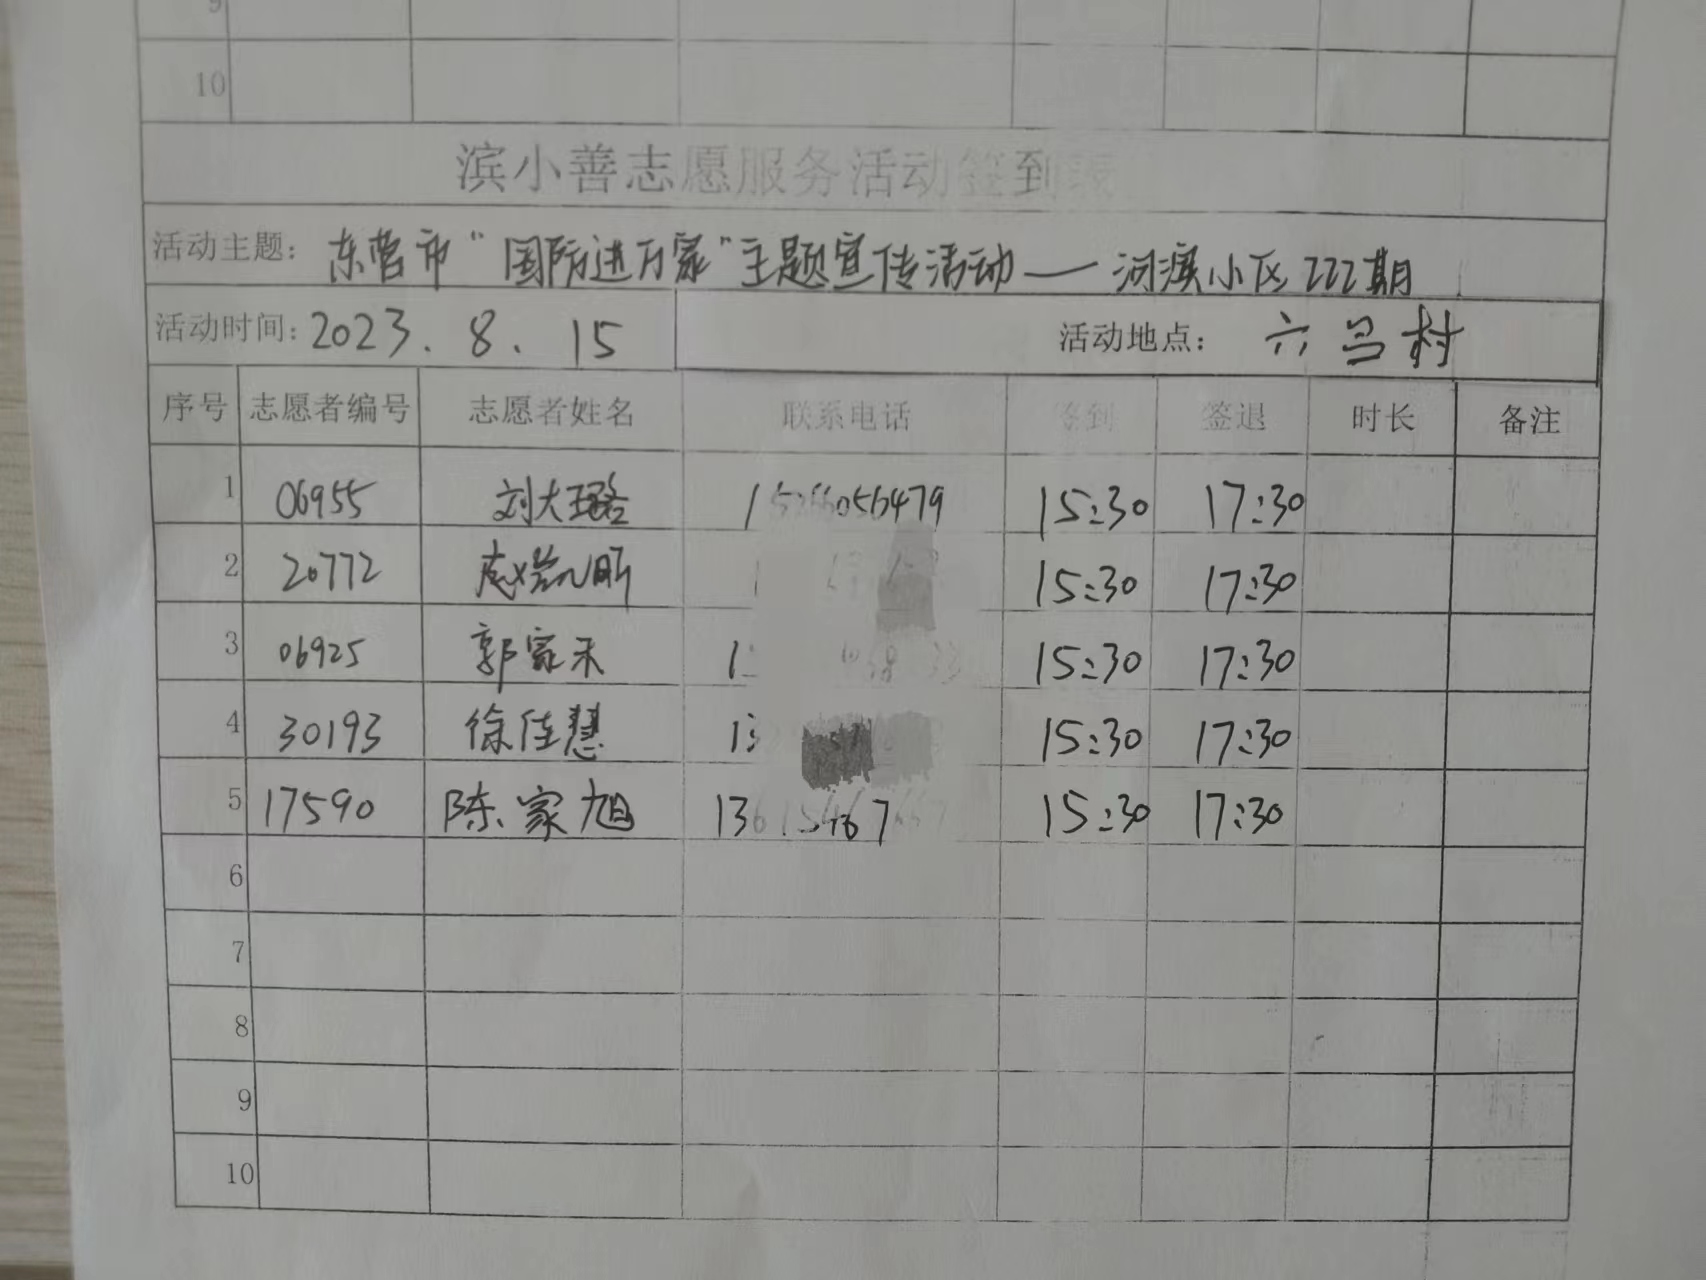 9
10
滨小善志愿服务活动签到表
活动主题：东营市“国防进万家”主题宣传活动——河滨小区222期
活动时间：2023.8.15 活动地点：六号村
序号 志愿者编号 志愿者姓名 联系电话 签到 签退 时长 备注
1 06955 刘大璐 15:30 17:30
2 20772 15:30 17:30
3 06925 郭家禾 15:30 17:30
4 30193 徐佳慧 15:30 17:30
5 17590 陈家旭 15:30 17:30
6
7
8
9
10